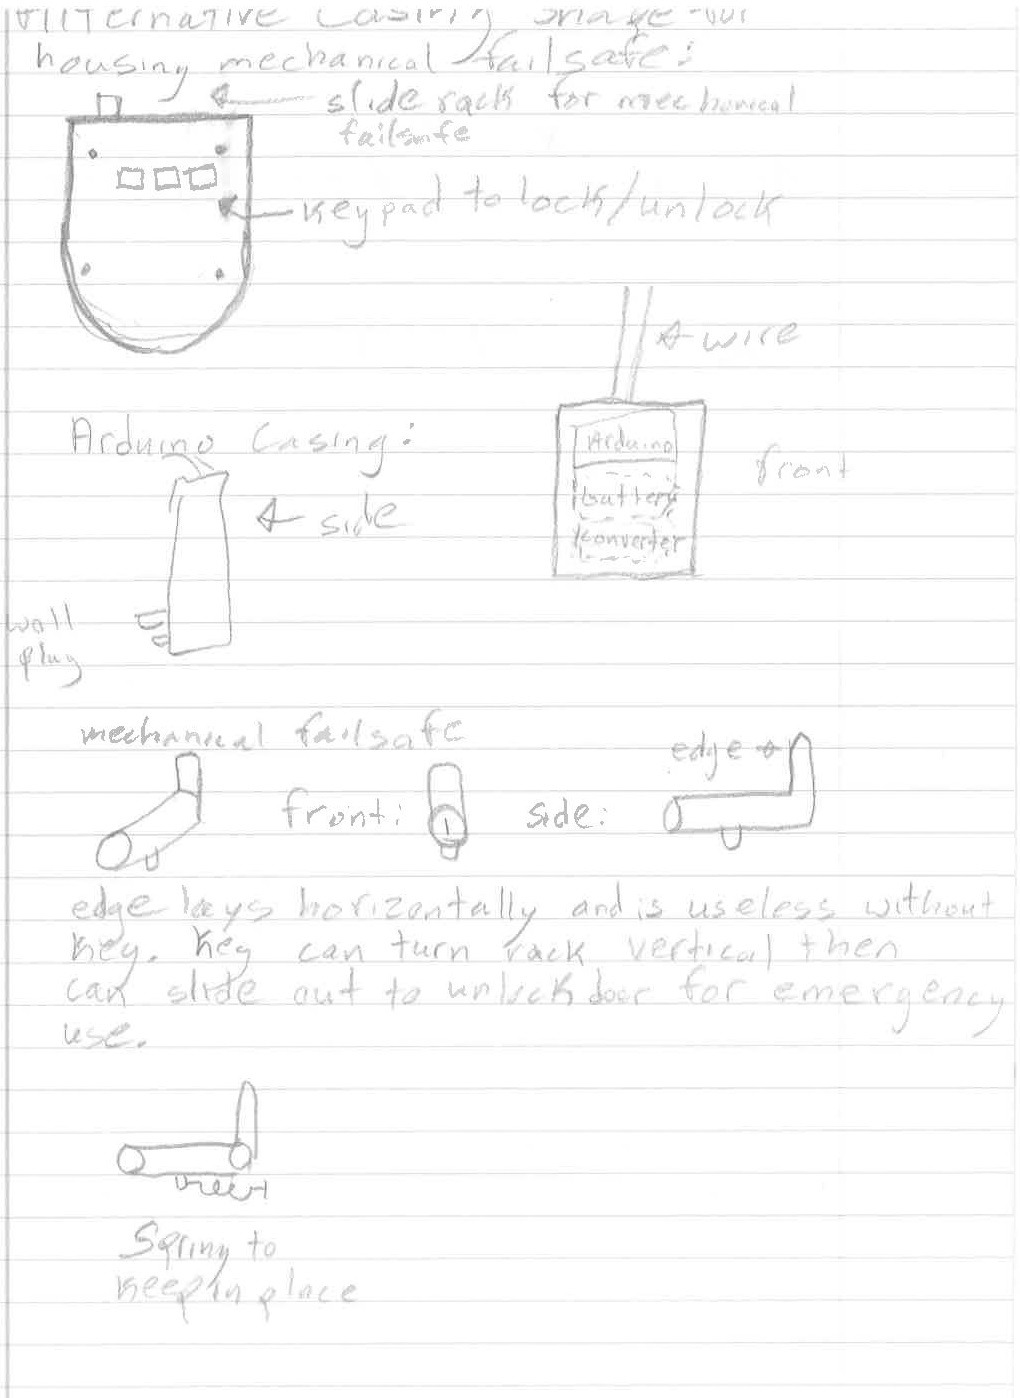 Alternative Casing Shape for
housing mechanical failsafe:
slide rack for mechanical
failsafe
keypad to lock/unlock
wire
Arduino Casing:
Arduino
front
battery
side
converter
wall
plug
mechanical failsafe
edge
front:
side:
edge lays horizontally and is useless without
key. Key can turn rack vertical then
can slide out to unlock door for emergency
use.
Spring to
keep in place